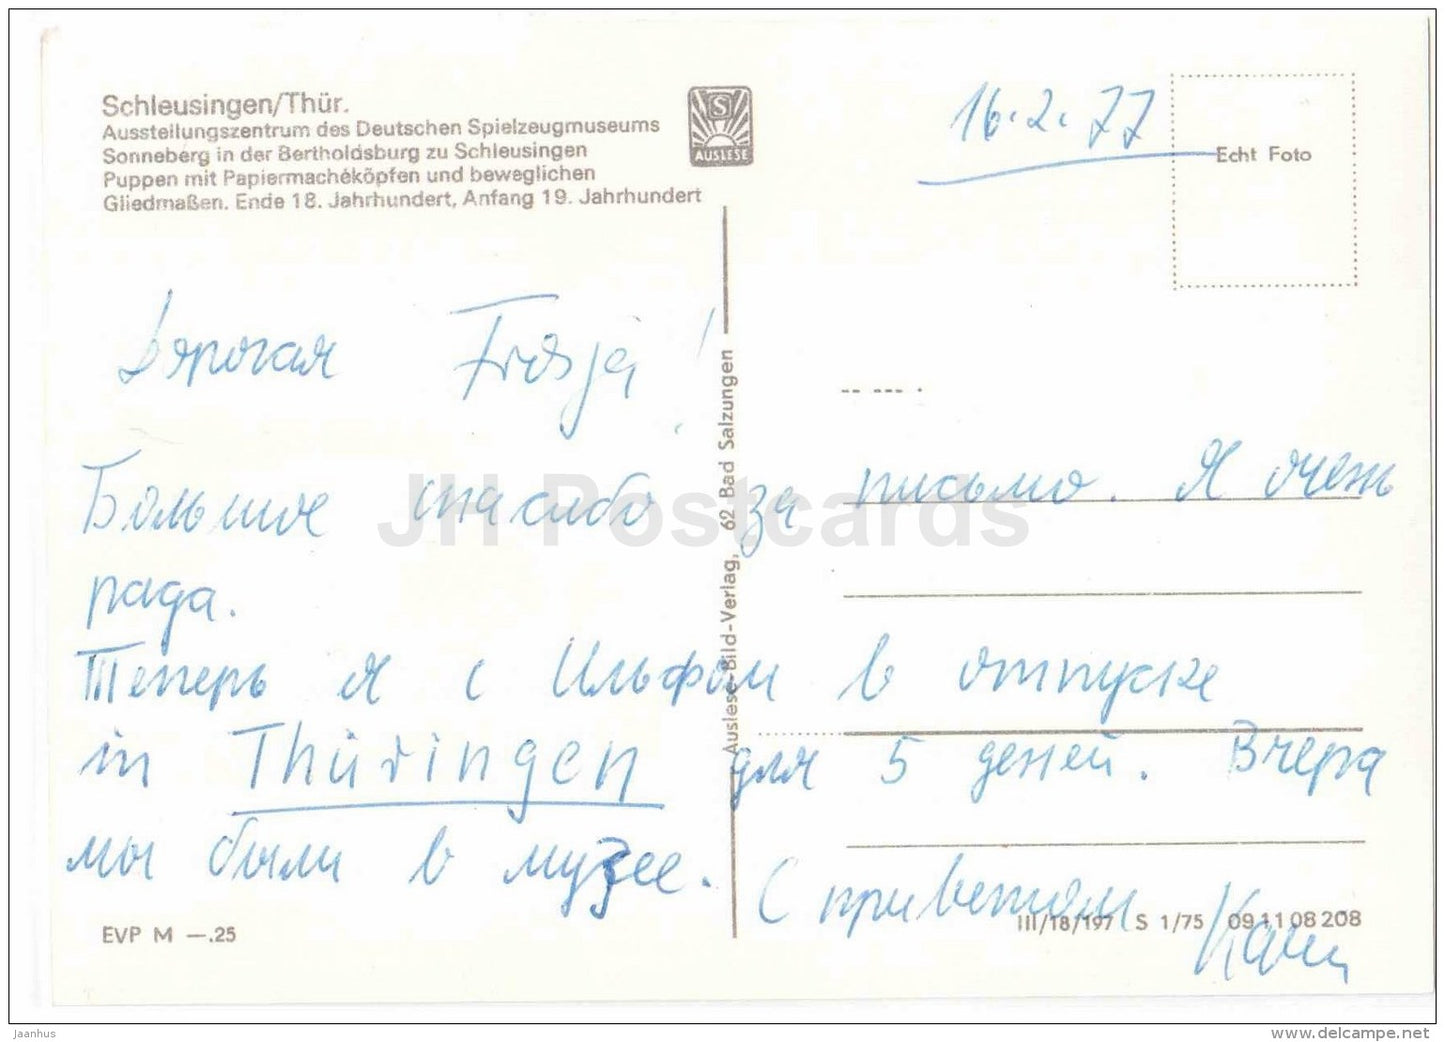 Schleusingen/Thür.
Ausstellungszentrum des Deutschen Spielzeugmuseums
Sonneberg in der Bertholdsburg zu Schleusingen
Puppen mit Papiermachéköpfen und beweglichen
Gliedmaßen. Ende 18. Jahrhundert, Anfang 19. Jahrhundert
S
AUSLESE
16.2.77
Echt Foto
Дорогая Frosja!
Большое спасибо за письмо. Я очень
рада.
Теперь я с Ильфом в отпуске
in Thüringen для 5 деней. Вчера
мы были в музее. С приветом
Auslese-Bild-Verlag, 62 Bad Salzungen
EVP M —.25
III/18/197 S 1/75 09 11 08 208
JH Postcards
jaanhus
www.delcampe.net